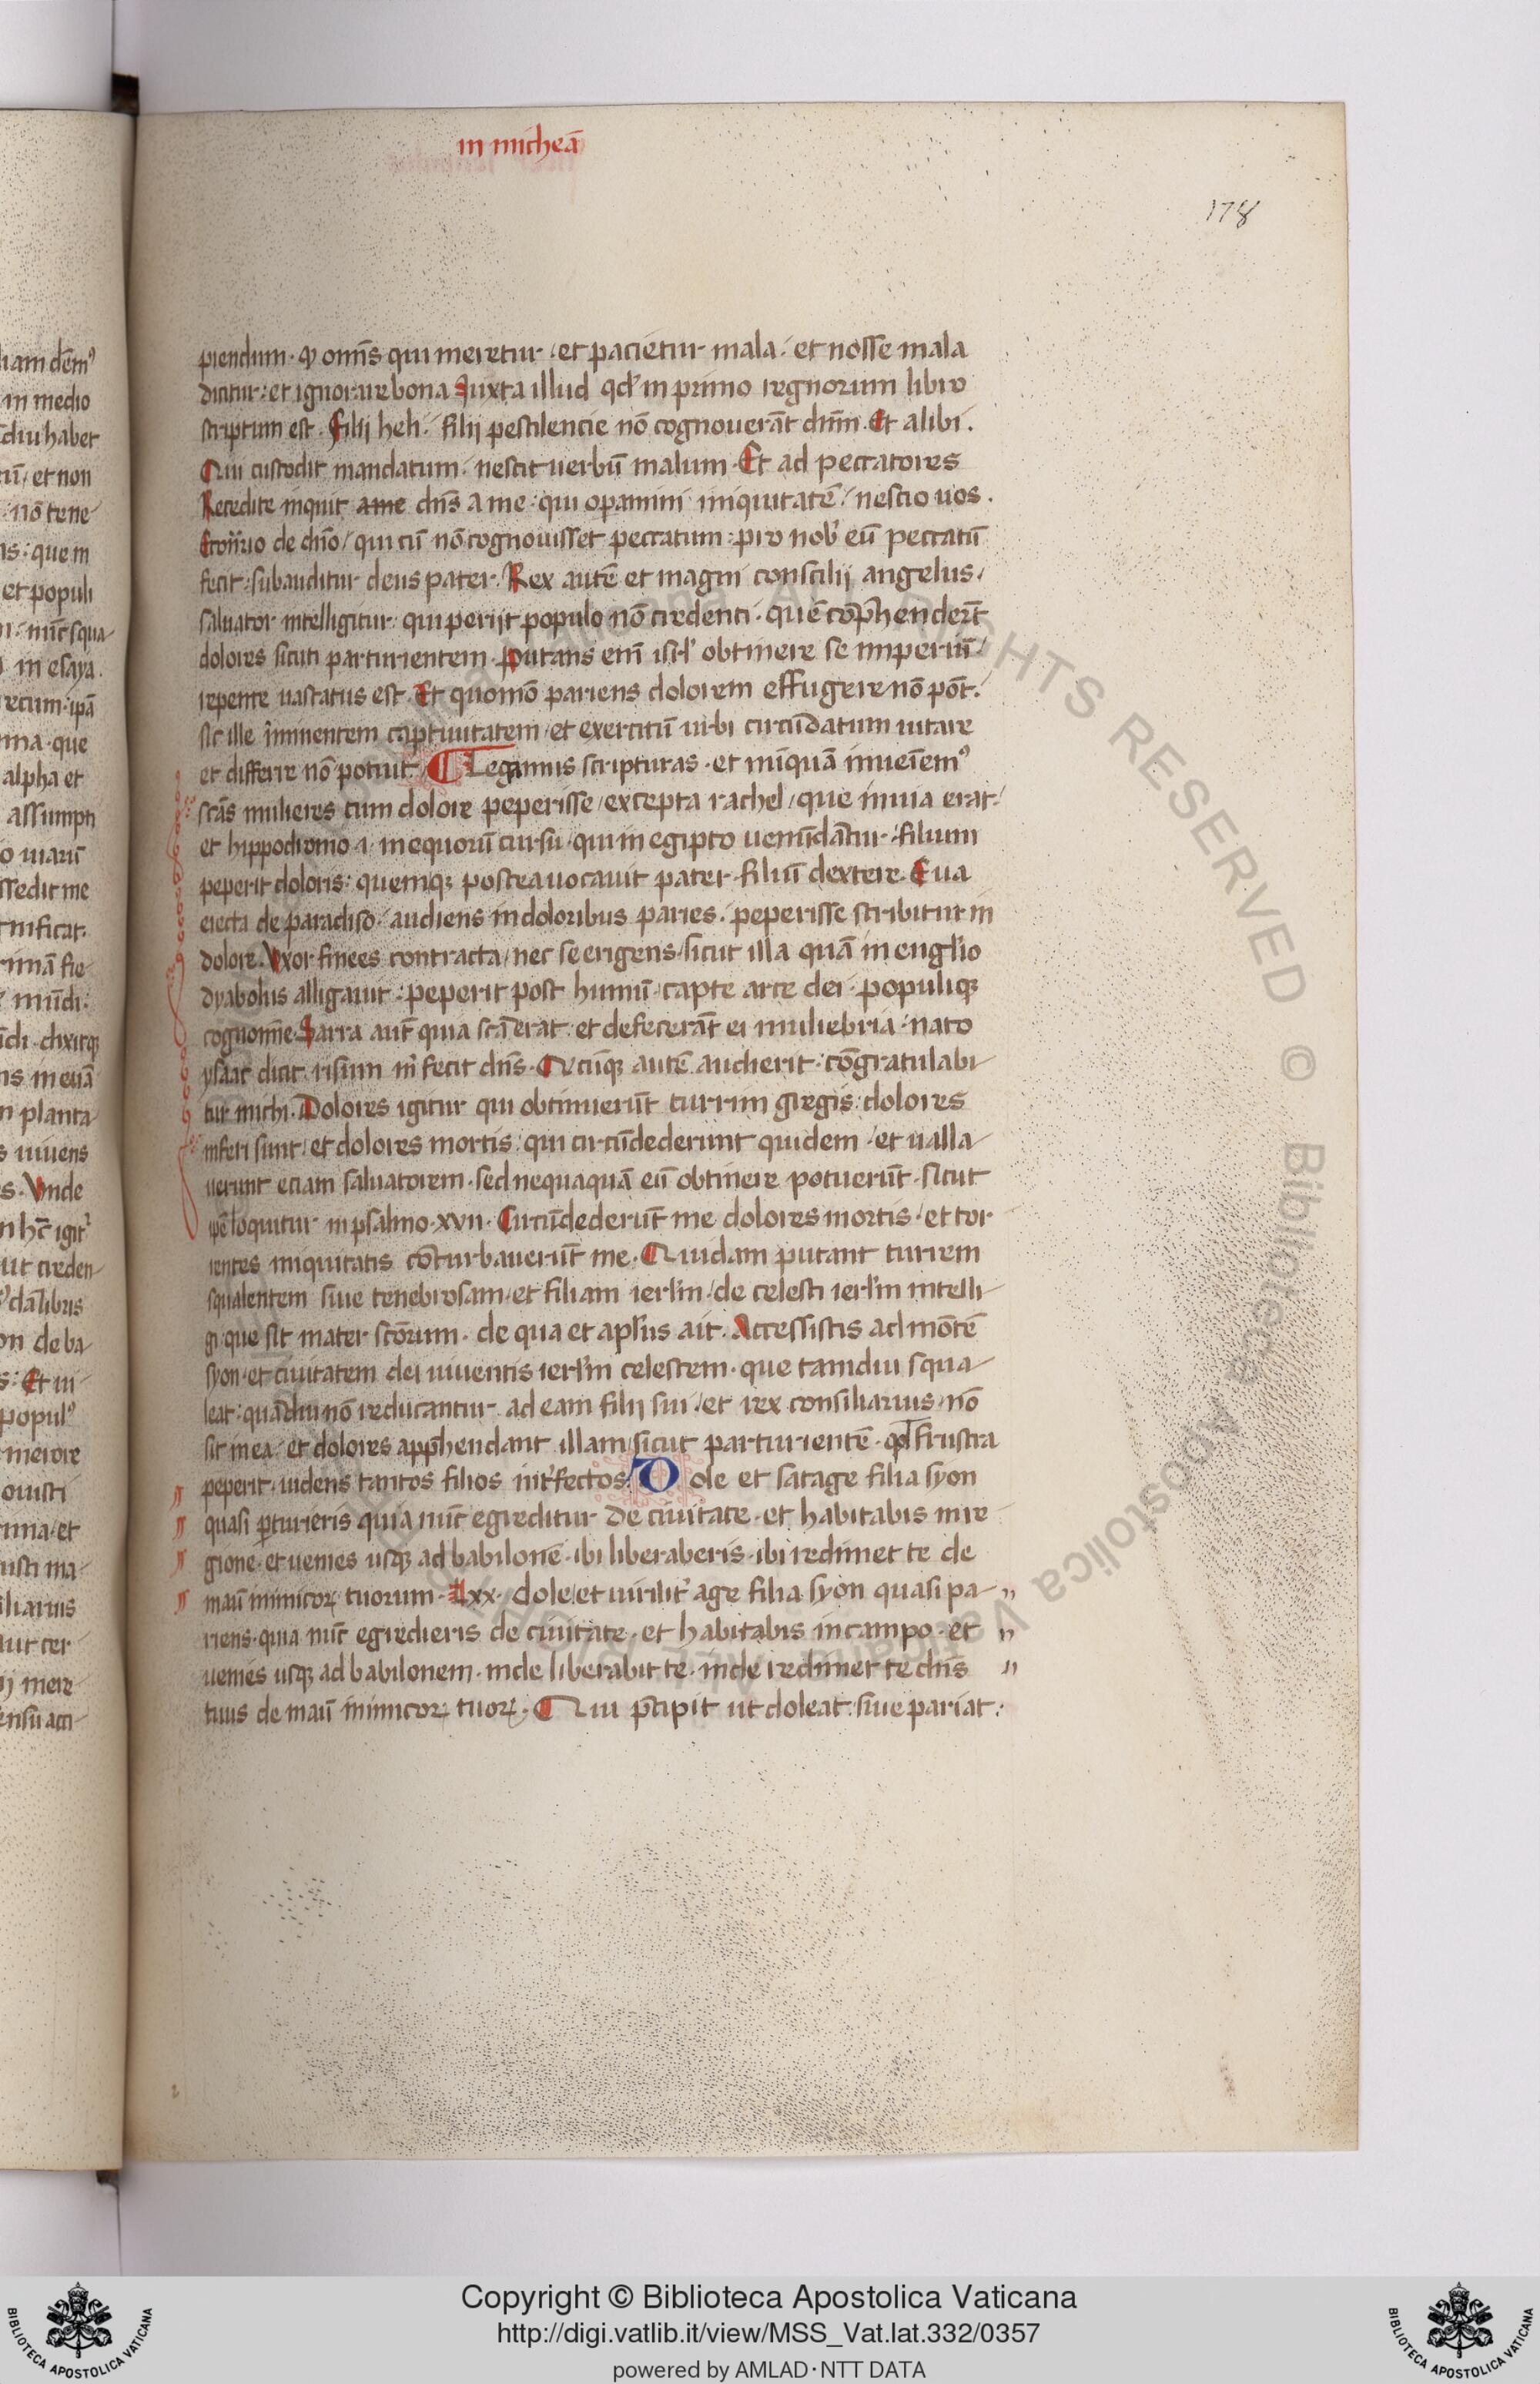 in micheā
178
piendum· ꝙ omīs qui meretur· et pacietur mala· et nosse mala
dicitur· et ignorare bona Iuxta illud qd' in primo regnorum libro
scriptum est· Filij heli· filij pestilencie nō cognouerāt dnm̄· Et alibi·
Qui custodit mandatum· nescit uerbū malum· Et ad peccatores
Recedite inquit ame dn̄s a me· qui operamini iniquitatē· nescio uos·
de dn̄o/ qui cū nō cognouisset peccatum· pro nob' eū peccatū
fecit· subauditur deus pater· Rex autē et magni conscilij angelus/
saluator intelligitur· qui perijt populo nō credenti· quē cōp̄hendert̄
dolores sicuti parturientem· putans eni isrl' obtinere se imperiū/
repente uastatus est· Et quomō pariens dolorem effugere nō pōt·
sic ille iminentem captiuitatem/ et exercitū urbi circūdatum uitare
et differre nō potuit· Legamus scripturas· et nūquā inueiem⁹
scās mulieres cum dolore peperisse/ excepta rachel/ que in uia erat/
et hippodromo ·i· in equorū cursu· qui in egipto uenūdātur· filium
peperit doloris· quemqꝫ postea uocauit pater filiū dextere· Eua
eiecta de paradiso· audiens in doloribus paries· peperisse scribitur in
dolore· Vxor finees contracta/ nec se erigens/ sicut illa quā in eugl'io
dyabolus alligauit· peperit post humū· capte arce dei· populiqꝫ
cognomīe· Sarra aut̄ quia scā erat· et defecerāt ei muliebria· nato
ysaac dicit· risum m' fecit dn̄s· Qicūqꝫ autē audierit· cōgratulabi
tur michi· Dolores igitur qui obtinuerūt turrim gregis· dolores
inferi sunt/ et dolores mortis· qui circūdederunt quidem· et ualla
uerunt eciam saluatorem· sed nequaquā eū obtinere potuerūt· sicut
ipē loquitur in psalmo ·xvii· Circūdederūt me dolores mortis· et tor
rentes iniquitatis cōturbauerūt me· Quidam putant turrem
squalentem siue tenebrosam/ et filiam ierl'm/ de celesti ierl'm intelli
gi· que sit mater scōrum· de qua et apl'us ait· Accessistis ad mōtē
syon· et ciuitatem dei uiuentis ierl'm celestem· que tamdiu squa
leat· quādiu nō reducantur ad eam filij sui· et rex consiliarius nō
sit in ea· et dolores app̄hendant illam/ sicut parturientē· qd' frustra
peperit· uidens tantos filios int'fectos· Dole et satage filia syon
quasi p̱turieris quia nūc egreditur de ciuitate· et habitabis in re
gione· et uenies usqꝫ ad babilonē· ibi liberaberis· ibi redimet te de
manū inimicoꝝ tuorum· lxx· dole et uirilit' age filia syon quasi pa
riens· quia nūc egredieris de ciuitate· et habitabis in campo· et
uenies usqꝫ ad babilonem· inde liberabit te· inde redimet te dn̄s
tuus de manū inimicoꝝ tuoꝝ· Qui p̄cipit ut doleat· siue pariat·
Copyright © Biblioteca Apostolica Vaticana
http://digi.vatlib.it/view/MSS_Vat.lat.332/0357
powered by AMLAD·NTT DATA